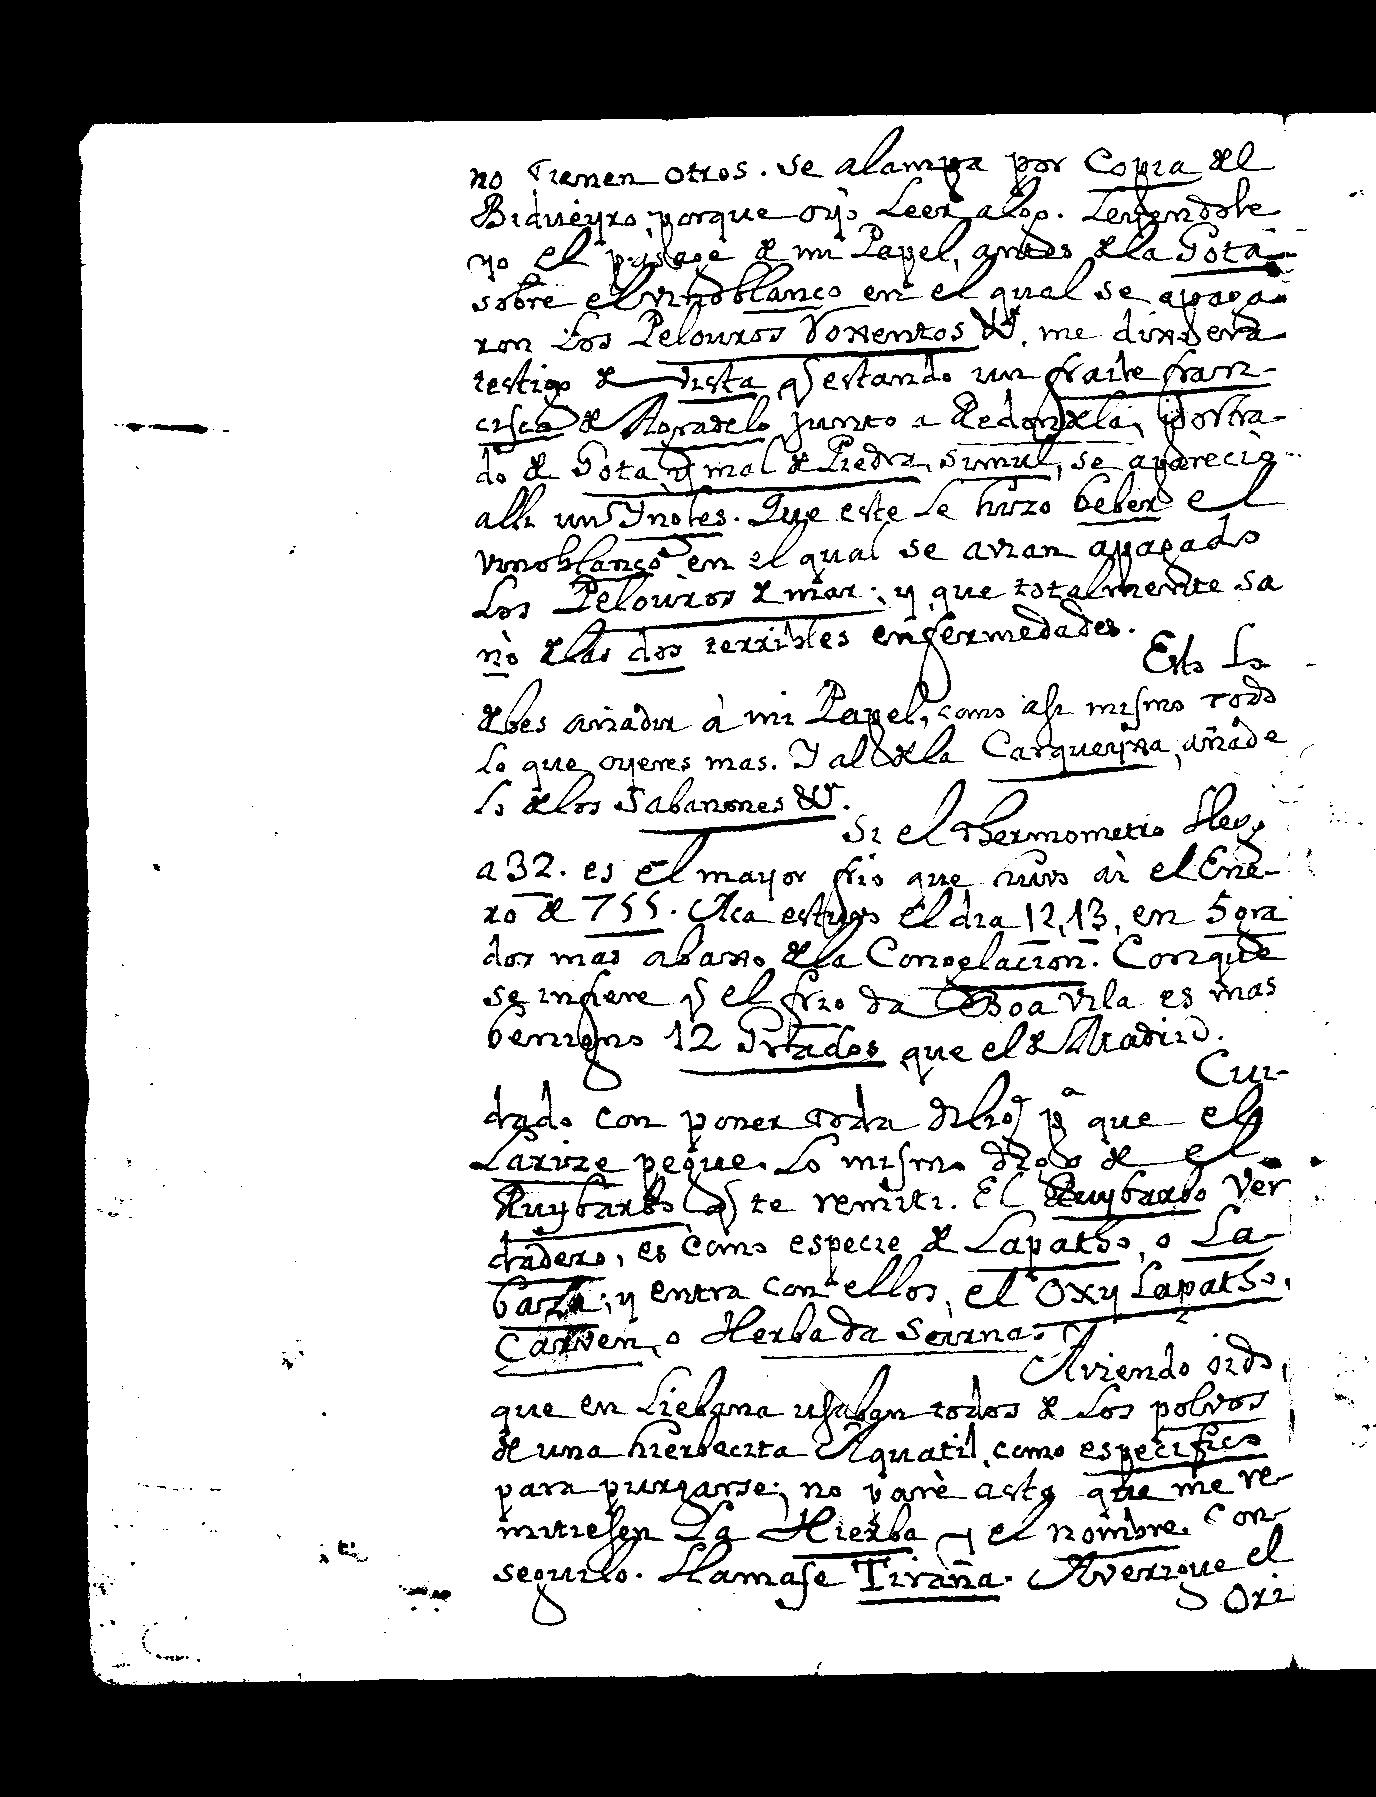 no tienen otros. Se alampa por Copia del
Bidueyro, porque oyó Leer algo. Leyendole
yo el pasage de mi Papel, antes de la Gota
sobre el vino blanco en el qual se apaga-
ron Los Pelouros Voxentos &c. me dixo era
testigo de vista q estando un fraile fran-
cisco de Agradelo junto a Redondela, postra-
do de Gota, y mal de Piedra, simul, se aparecio
alli un Ynoles. Que este Le hizo beber el
vino blanco en el qual se avian apagado
Los Pelouros de mar; y que totalmente sa
nò de las dos terribles enfermedades.
Esto Lo
debes añadir à mi Papel, como asi mismo todo
Lo que oyeres mas. Y al de la Carqueyxa, añade
Lo de los Sabañones &c.
Si el thermometro Llegó
a 32. es el mayor frio que tuvo ai el Ene-
ro de 755. Aca estuvo el dia 12, 13, en 5 gra
dos mas abaxo de la Congelacion. Conque
se infiere q el frio da Boa Vila es mas
benigno 12 Grados que el de Madrid.
Cui-
dado con poner toda dilig.ª p.ª que el
Larize pegue. Lo mismo digo de el
Ruybarbo q te remiti. El Ruybarbo Ver
dadero, es como especie de Lapatho, o La-
baza; y entra con ellos, el Oxy Lapatho,
Carven, o Herba da Serna.
Aviendo oido,
que en Liebana usaban todos de Los polvos
de una hierbecita Aquatil, como especifico
para purgarse; no parè asta que me re-
mitiesen La Hierba y el nombre. Con-
seguilo. Llamase Tiraña. Averigue el
Ori